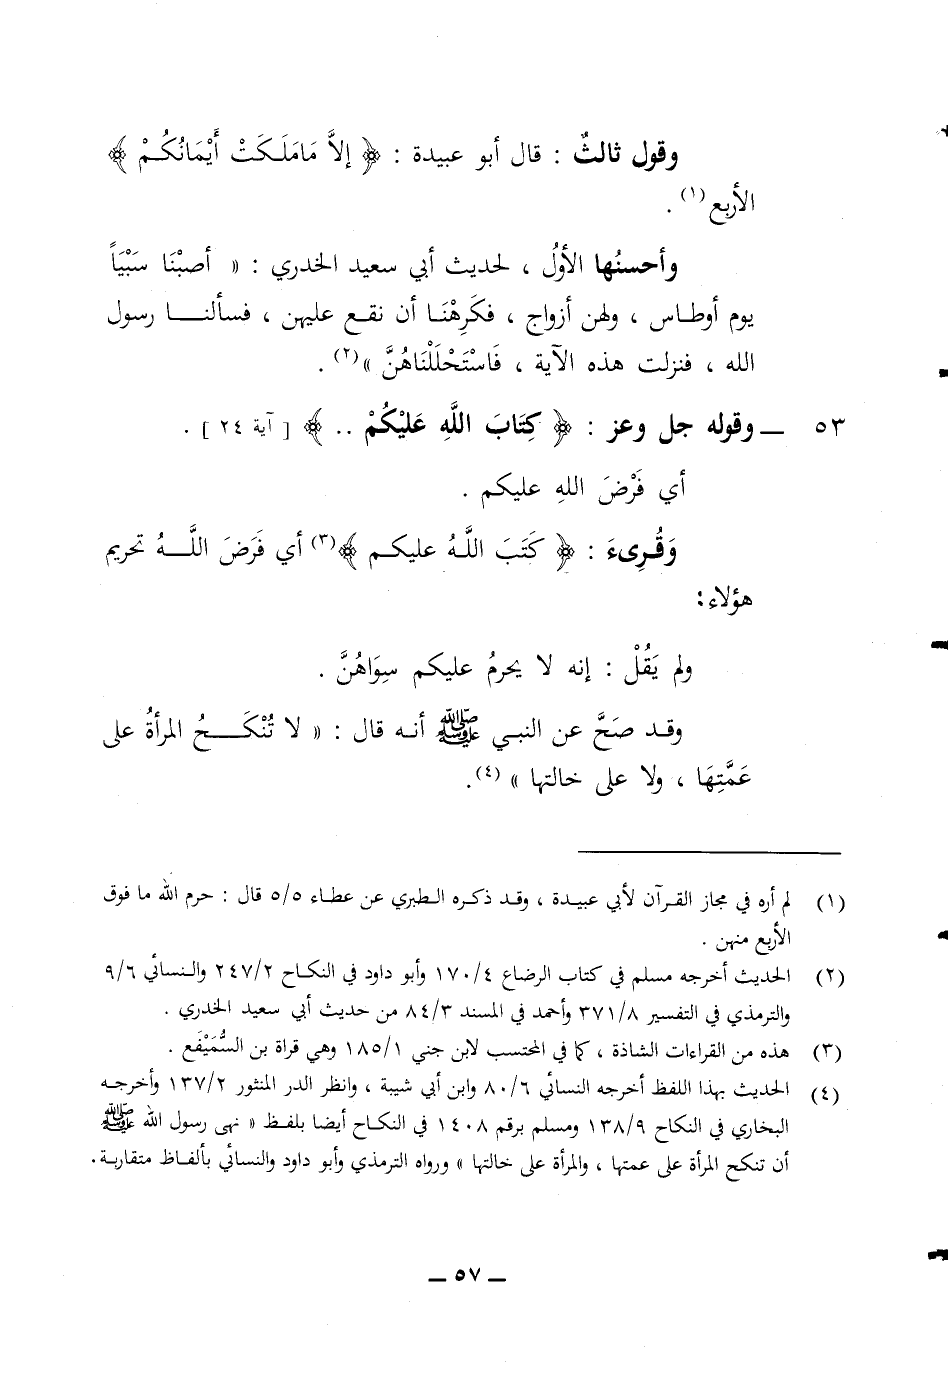 وقول ثالثٌ : قال أبو عبيدة : ﴿ إلاَّ مَامَلَكَتْ أَيْمَانُكُمْ ﴾
الأربع(١) .
وأحسنُها الأولُ ، لحديث أبي سعيد الخدري : « أصبْنَا سَبْيَاً
يوم أوطاس ، ولهن أزواج ، فكَرِهْنَا أن نقع عليهن ، فسألنا رسول
الله ، فنزلت هذه الآية ، فَاسْتَحْلَلْنَاهُنَّ »(٢) .
٥٣ ــ وقوله جل وعز : ﴿ كِتَابَ اللَّهِ عَلَيْكُمْ .. ﴾ [ آية ٢٤ ] .
أي فَرْضَ اللهِ عليكم .
وَقُرِىءَ : ﴿ كَتَبَ اللَّهُ عليكم ﴾(٣) أي فَرَضَ اللَّهُ تحريم
هؤلاء:
ولم يَقُلْ : إنه لا يحرمُ عليكم سِوَاهُنَّ .
وقد صَحَّ عن النبي ﷺ أنه قال : « لا تُنْكَحُ المرأةُ على
عَمَّتِهَا ، ولا على خالتها » (٤).
(١) لم أره في مجاز القرآن لأبي عبيدة ، وقد ذكره الطبري عن عطاء ٥/٥ قال : حرم الله ما فوق
الأربع منهن .
(٢) الحديث أخرجه مسلم في كتاب الرضاع ١٧٠/٤ وأبو داود في النكاح ٢٤٧/٢ والنسائي ٩/٦
والترمذي في التفسير ٣٧١/٨ وأحمد في المسند ٨٤/٣ من حديث أبي سعيد الخدري .
(٣) هذه من القراءات الشاذة ، كما في المحتسب لابن جني ١٨٥/١ وهي قراة بن السُّمَيْفَع .
(٤) الحديث بهذا اللفظ أخرجه النسائي ٨٠/٦ وابن أبي شيبة ، وانظر الدر المنثور ١٣٧/٢ وأخرجه
البخاري في النكاح ١٣٨/٩ ومسلم برقم ١٤٠٨ في النكاح أيضا بلفظ « نهى رسول الله ﷺ
أن تنكح المرأة على عمتها ، والمرأة على خالتها » ورواه الترمذي وأبو داود والنسائي بألفاظ متقاربة .
ــ ٥٧ ــ